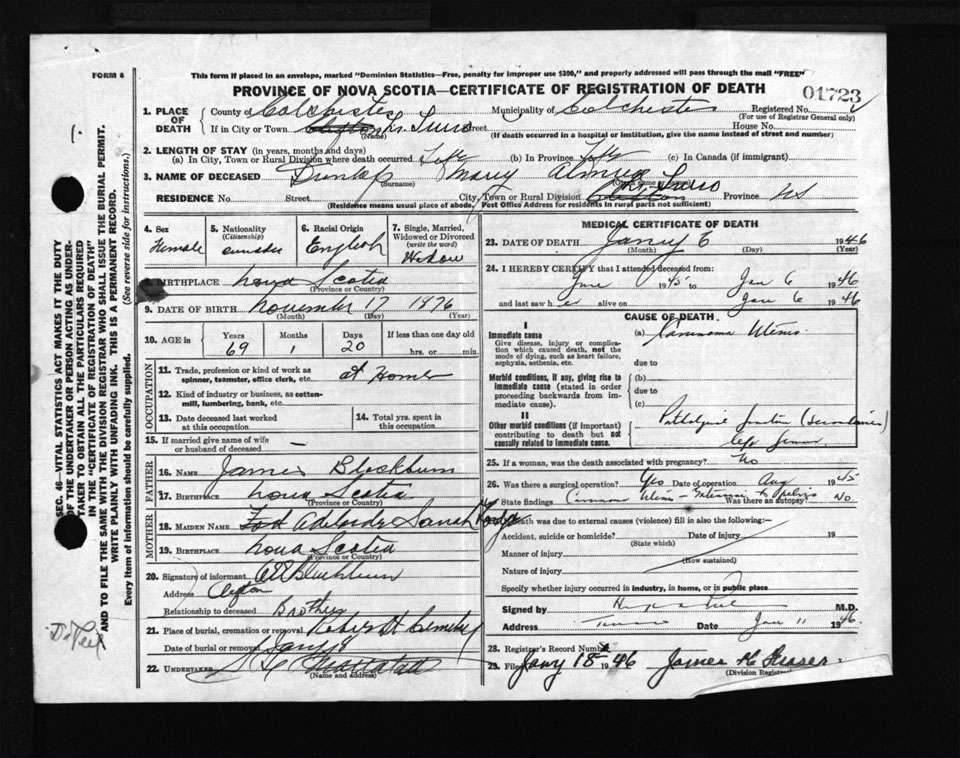 This form if placed in an envelope, marked "Dominion Statistics—Free, penalty for improper use $300," and properly addressed will pass through the mail "FREE"
FORM 6
PROVINCE OF NOVA SCOTIA—CERTIFICATE OF REGISTRATION OF DEATH
01723
1. PLACE OF DEATH
County of Colchester Municipality of Colchester Registered No.
(For use of Registrar General only)
If in City or Town Clifton Truro Street House No.
(Name) (If death occurred in a hospital or institution, give the name instead of street and number)
2. LENGTH OF STAY (in years, months and days)
(a) In City, Town or Rural Division where death occurred Life (b) In Province Life (c) In Canada (if immigrant)
3. NAME OF DECEASED Dunlap Mary
(Surname)
RESIDENCE No. Street City, Town or Rural Division Clifton Truro Province NS
(Residence means usual place of abode. Post Office Address for residents in rural parts not sufficient)
4. Sex Female
5. Nationality (Citizenship)
6. Racial Origin English
7. Single, Married, Widowed or Divorced (write the word) Widow
8. BIRTHPLACE Nova Scotia
(Province or Country)
9. DATE OF BIRTH November 17 1876
(Month) (Day) (Year)
10. AGE in Years 69 Months 1 Days 20 If less than one day old hrs. or min.
OCCUPATION
11. Trade, profession or kind of work as spinner, teamster, office clerk, etc. at Home
12. Kind of industry or business, as cotton-mill, lumbering, bank, etc.
13. Date deceased last worked at this occupation
14. Total yrs. spent in this occupation
15. If married give name of wife or husband of deceased —
FATHER
16. NAME James Blackburn
17. BIRTHPLACE Nova Scotia
MOTHER
18. MAIDEN NAME Adelaide Sarah
19. BIRTHPLACE Nova Scotia
(Province or Country)
20. Signature of informant Blackburn
Address Clifton
Relationship to deceased Brother
21. Place of burial, cremation or removal Cemetery
Date of burial or removal
22. UNDERTAKER
(Name and address)
MEDICAL CERTIFICATE OF DEATH
23. DATE OF DEATH Jany 6 1946
(Month) (Day) (Year)
24. I HEREBY CERTIFY that I attended deceased from:
June 1945 to Jan 6 1946
and last saw her alive on Jan 6 1946
CAUSE OF DEATH
I
Immediate cause
Give disease, injury or complication which caused death, not the mode of dying, such as heart failure, asphyxia, asthenia, etc.
(a) Carcinoma Uterus
due to
Morbid conditions, if any, giving rise to immediate cause (stated in order proceeding backwards from immediate cause).
(b)
due to
(c)
II
Other morbid conditions (if important) contributing to death but not causally related to immediate cause.
Pathological fracture (secondaries)
left femur
25. If a woman, was the death associated with pregnancy? No
26. Was there a surgical operation? Yes Date of operation Aug 1945
State findings Uterus – Extension to Pelvis Was there an autopsy? No
27. If death was due to external causes (violence) fill in also the following:—
Accident, suicide or homicide? Date of injury 19
(State which)
Manner of injury
(How sustained)
Nature of injury
Specify whether injury occurred in industry, in home, or in public place
Signed by M.D.
Address Truro Date Jan 11 1946
28. Registrar's Record Number
29. Filed Jany 18 1946 James H Fraser
(Division Registrar)
SEC. 46—VITAL STATISTICS ACT MAKES IT THE DUTY OF THE UNDERTAKER OR PERSON ACTING AS UNDERTAKER TO OBTAIN ALL THE PARTICULARS REQUIRED IN THE "CERTIFICATE OF REGISTRATION OF DEATH" AND TO FILE THE SAME WITH THE DIVISION REGISTRAR WHO SHALL ISSUE THE BURIAL PERMIT.
WRITE PLAINLY WITH UNFADING INK. THIS IS A PERMANENT RECORD.
Every item of information should be carefully supplied. (See reverse side for instructions.)